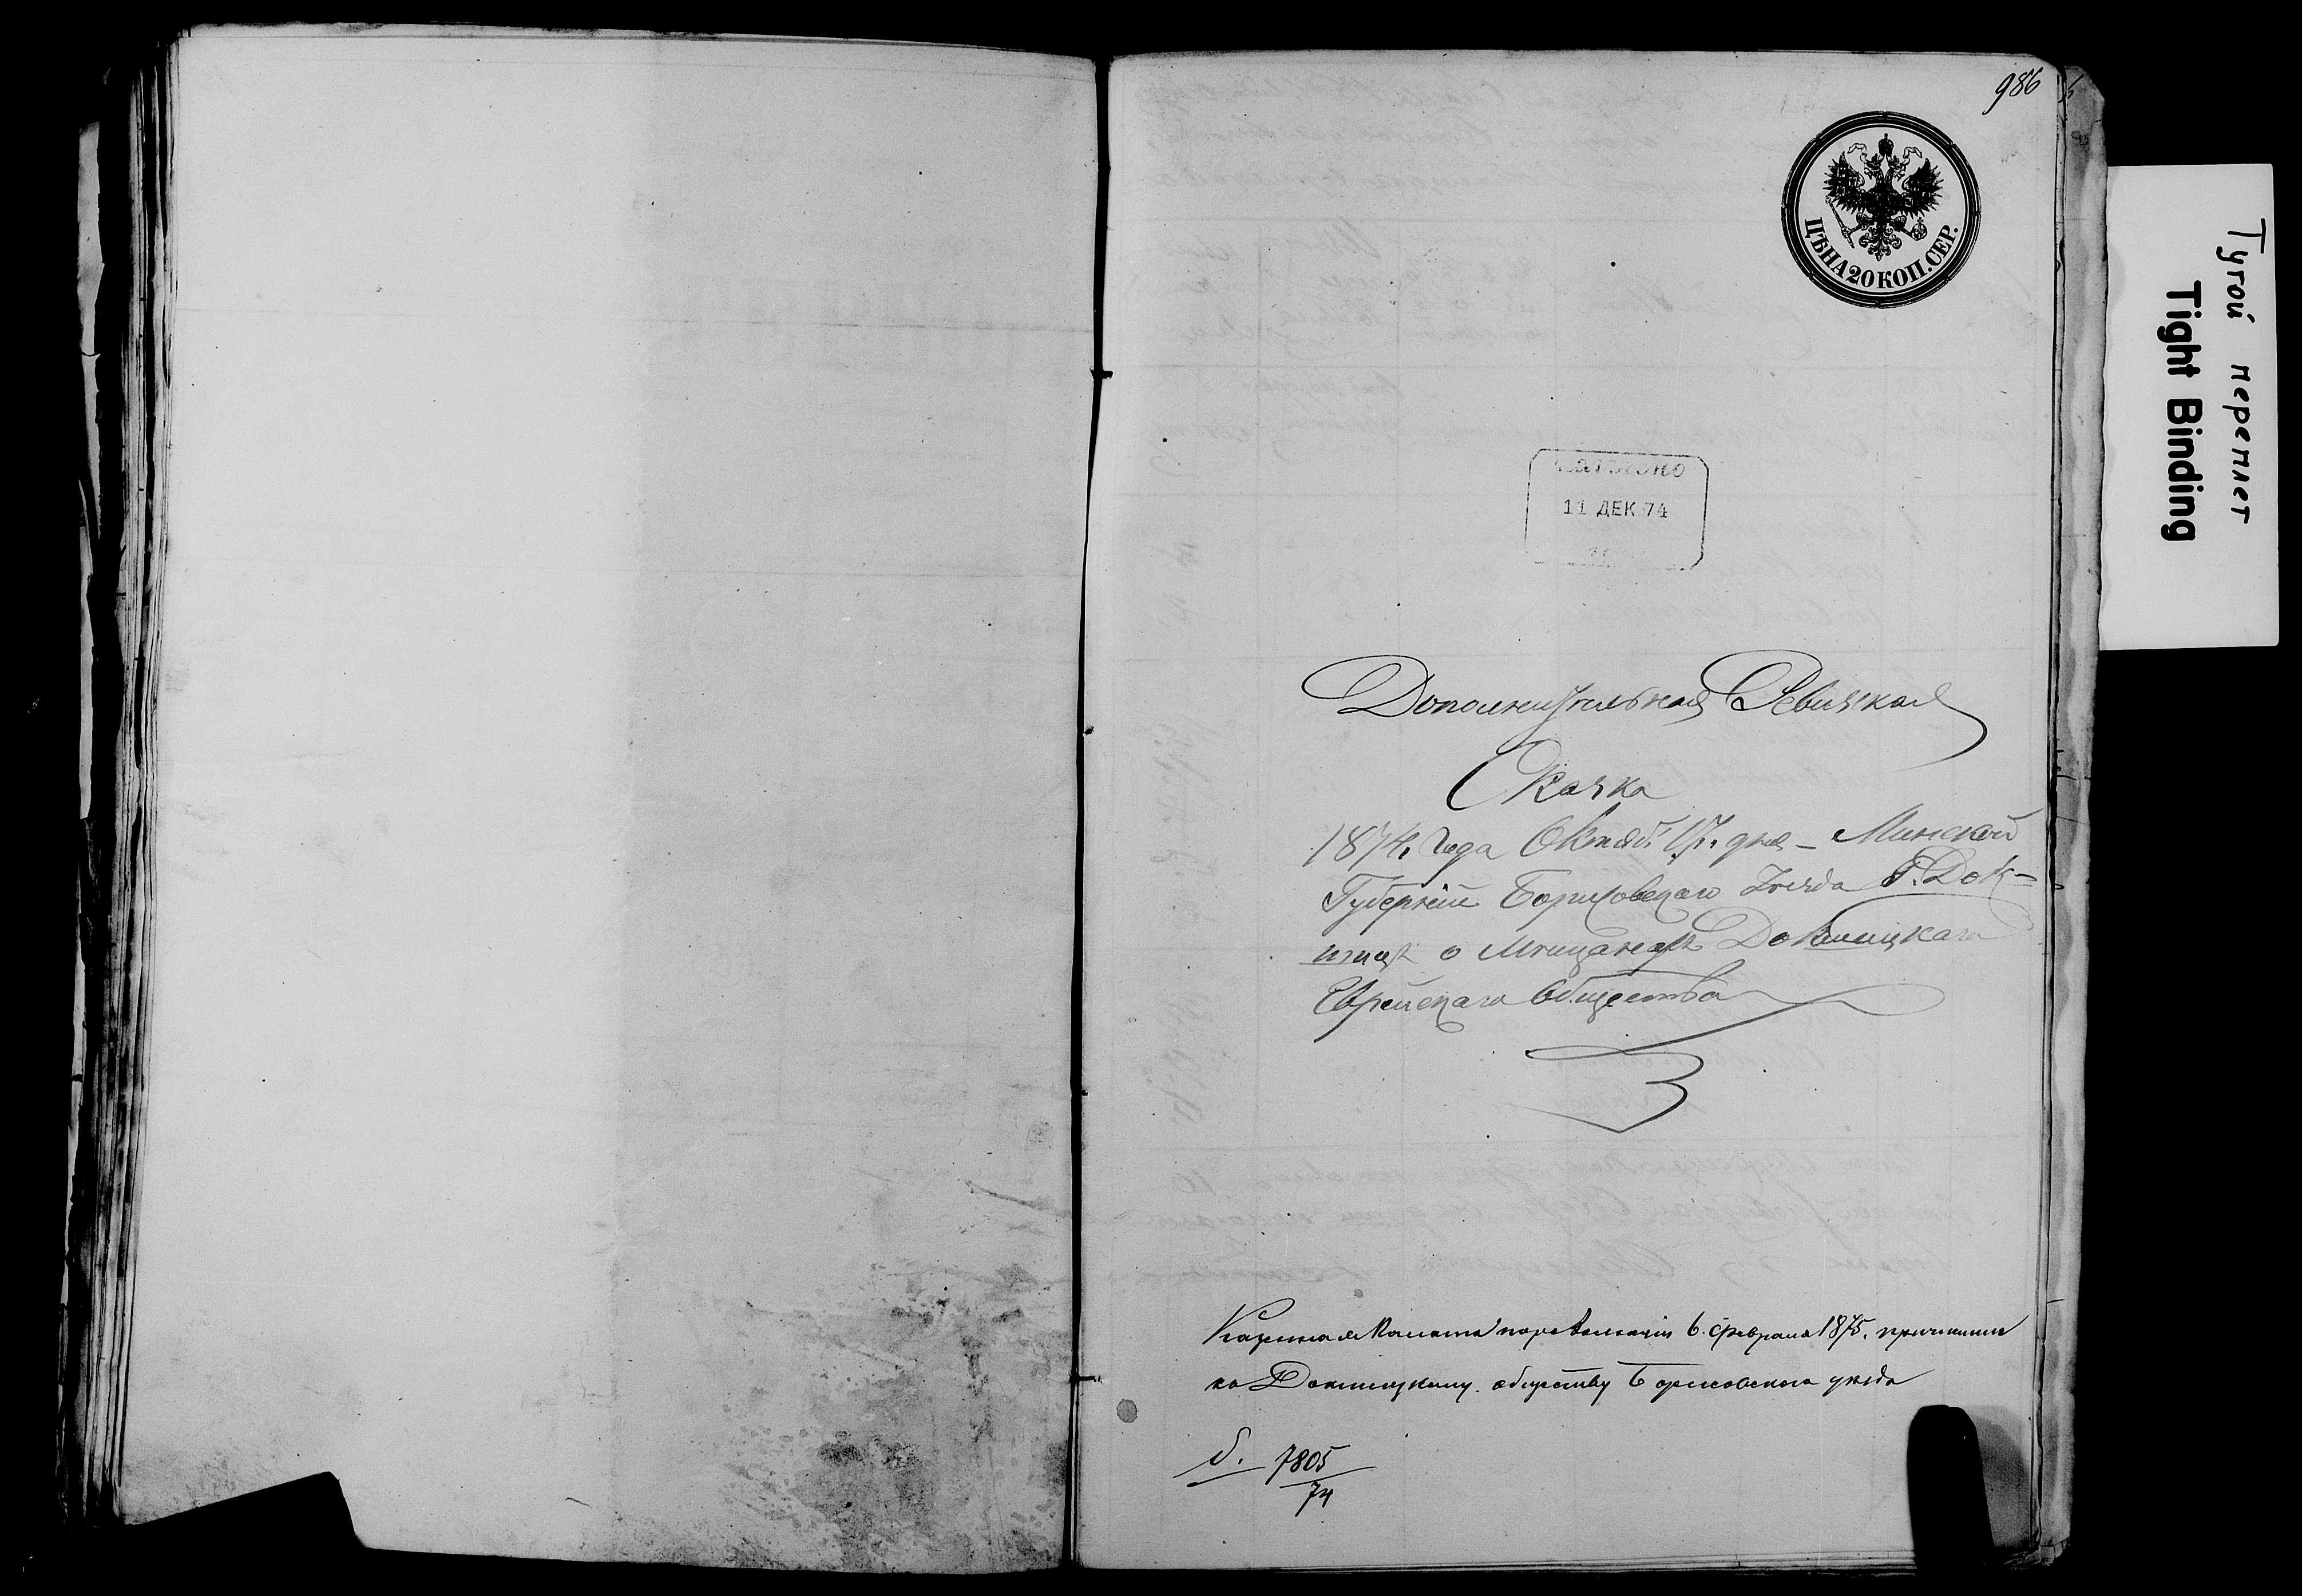 986
ЦѢНА 20 КОП. СЕР.
11 ДЕК 74
Дополнительная Ревизкая
Сказка
1874 Года Октяб. 17. дня — Минской
Губерніи Борисовскаго Уѣзда Г. Док-
шицѣ о Мѣщанахъ Докшицкаго
Еврейскаго Общества
Казенная Палата 6. февраля 1875. причислила
ко Докшицкому обществу Борисовского уѣзда
б. 7805
74
Тугой переплет
Tight Binding